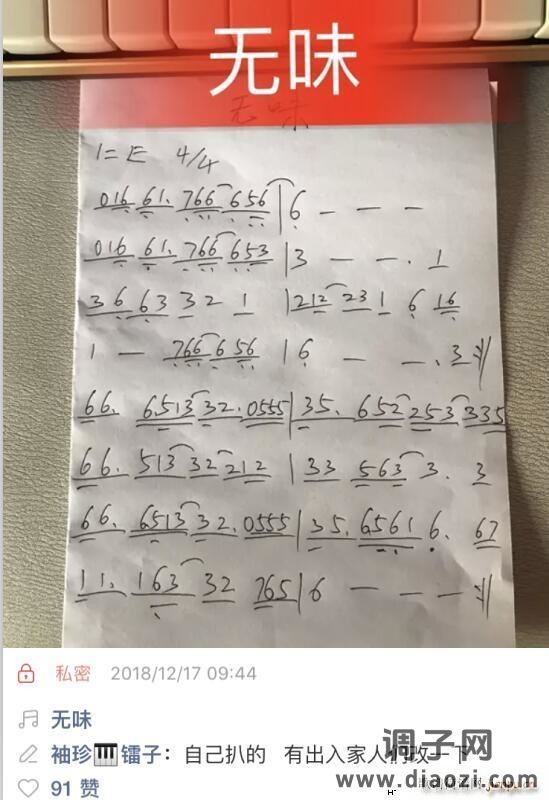 无味
无味
1=E 4/4
016 61. 766 656 | 6 — — —
016 61. 766 653 | 3 — — . 1
36 63 32 1 | 212 231 6 16
1 — 766 656 | 6 — — . 3 :||
66. 6513 32. 0555 | 35. 652 253 335
66. 513 32 212 | 33 563 3. 3
66. 6513 32. 0555 | 35. 6561 6. 67
11. 163 32 765 | 6 — — — :||
私密 2018/12/17 09:44
无味
袖珍🎹镭子：自己扒的 有出入家人们改一下
91 赞
调子网
www.diaozi.com